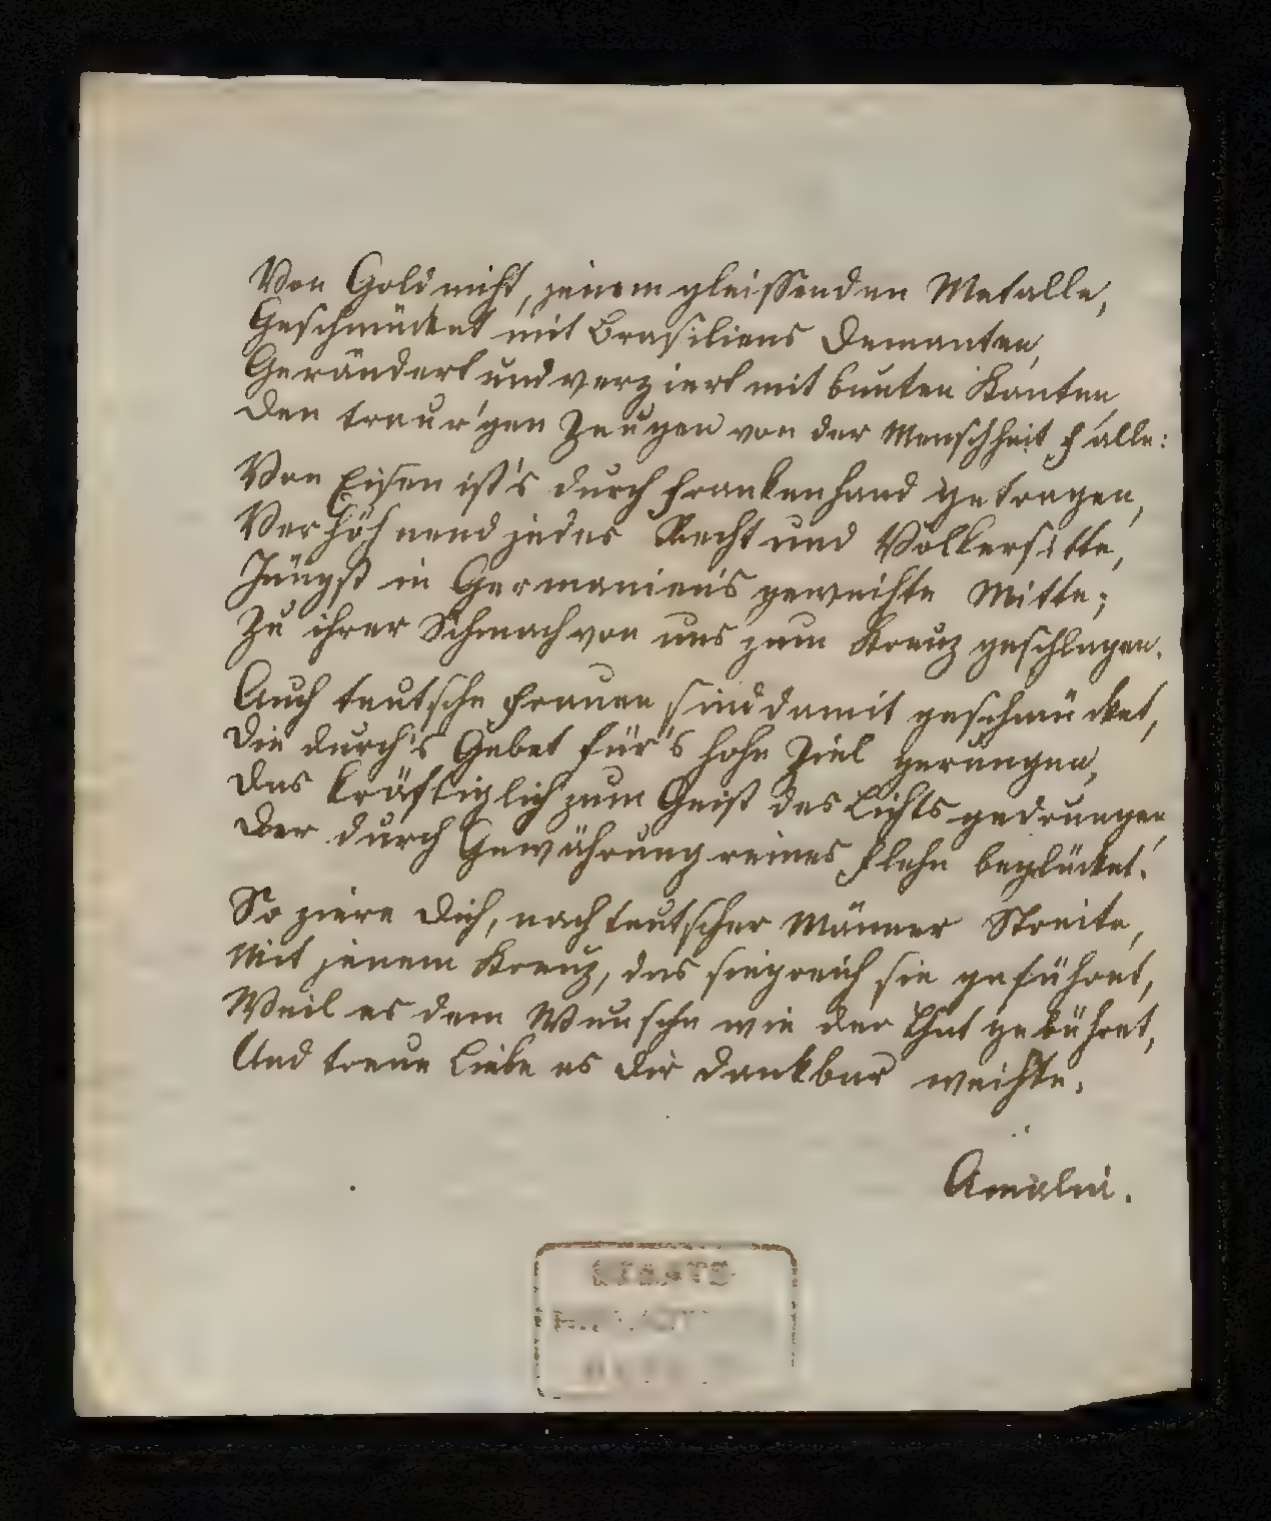 Von Gold nicht, jenem gleissenden Metalle,
Geschmücket mit Brasiliens Demanten,
Gerändert und verziert mit bunten Kanten,
Den traur'gen Zeugen von der Menschheit Falle:
Von Eisen ist's durch Frankenhand getragen,
Verhöhnend jedes Recht und Völkersitte,
Jüngst in Germanien's geweihte Mitte;
Zu ihrer Schmach von uns zum Kreuz geschlagen.
Auch teutsche Frauen sind damit geschmücket,
Die durch's Gebet für's hohe Ziel gerungen,
Das kräftiglich zum Geist des Lichts gedrungen,
Der durch Gewährung reines Flehn beglücket.
So ziere Dich, nach teutscher Männer Streite,
Mit jenem Kreuz, das siegreich sie geführet,
Weil es dem Wunsche wie der That gebühret,
Und treue Liebe es Dir dankbar weihte.
Amalia.
STAATS